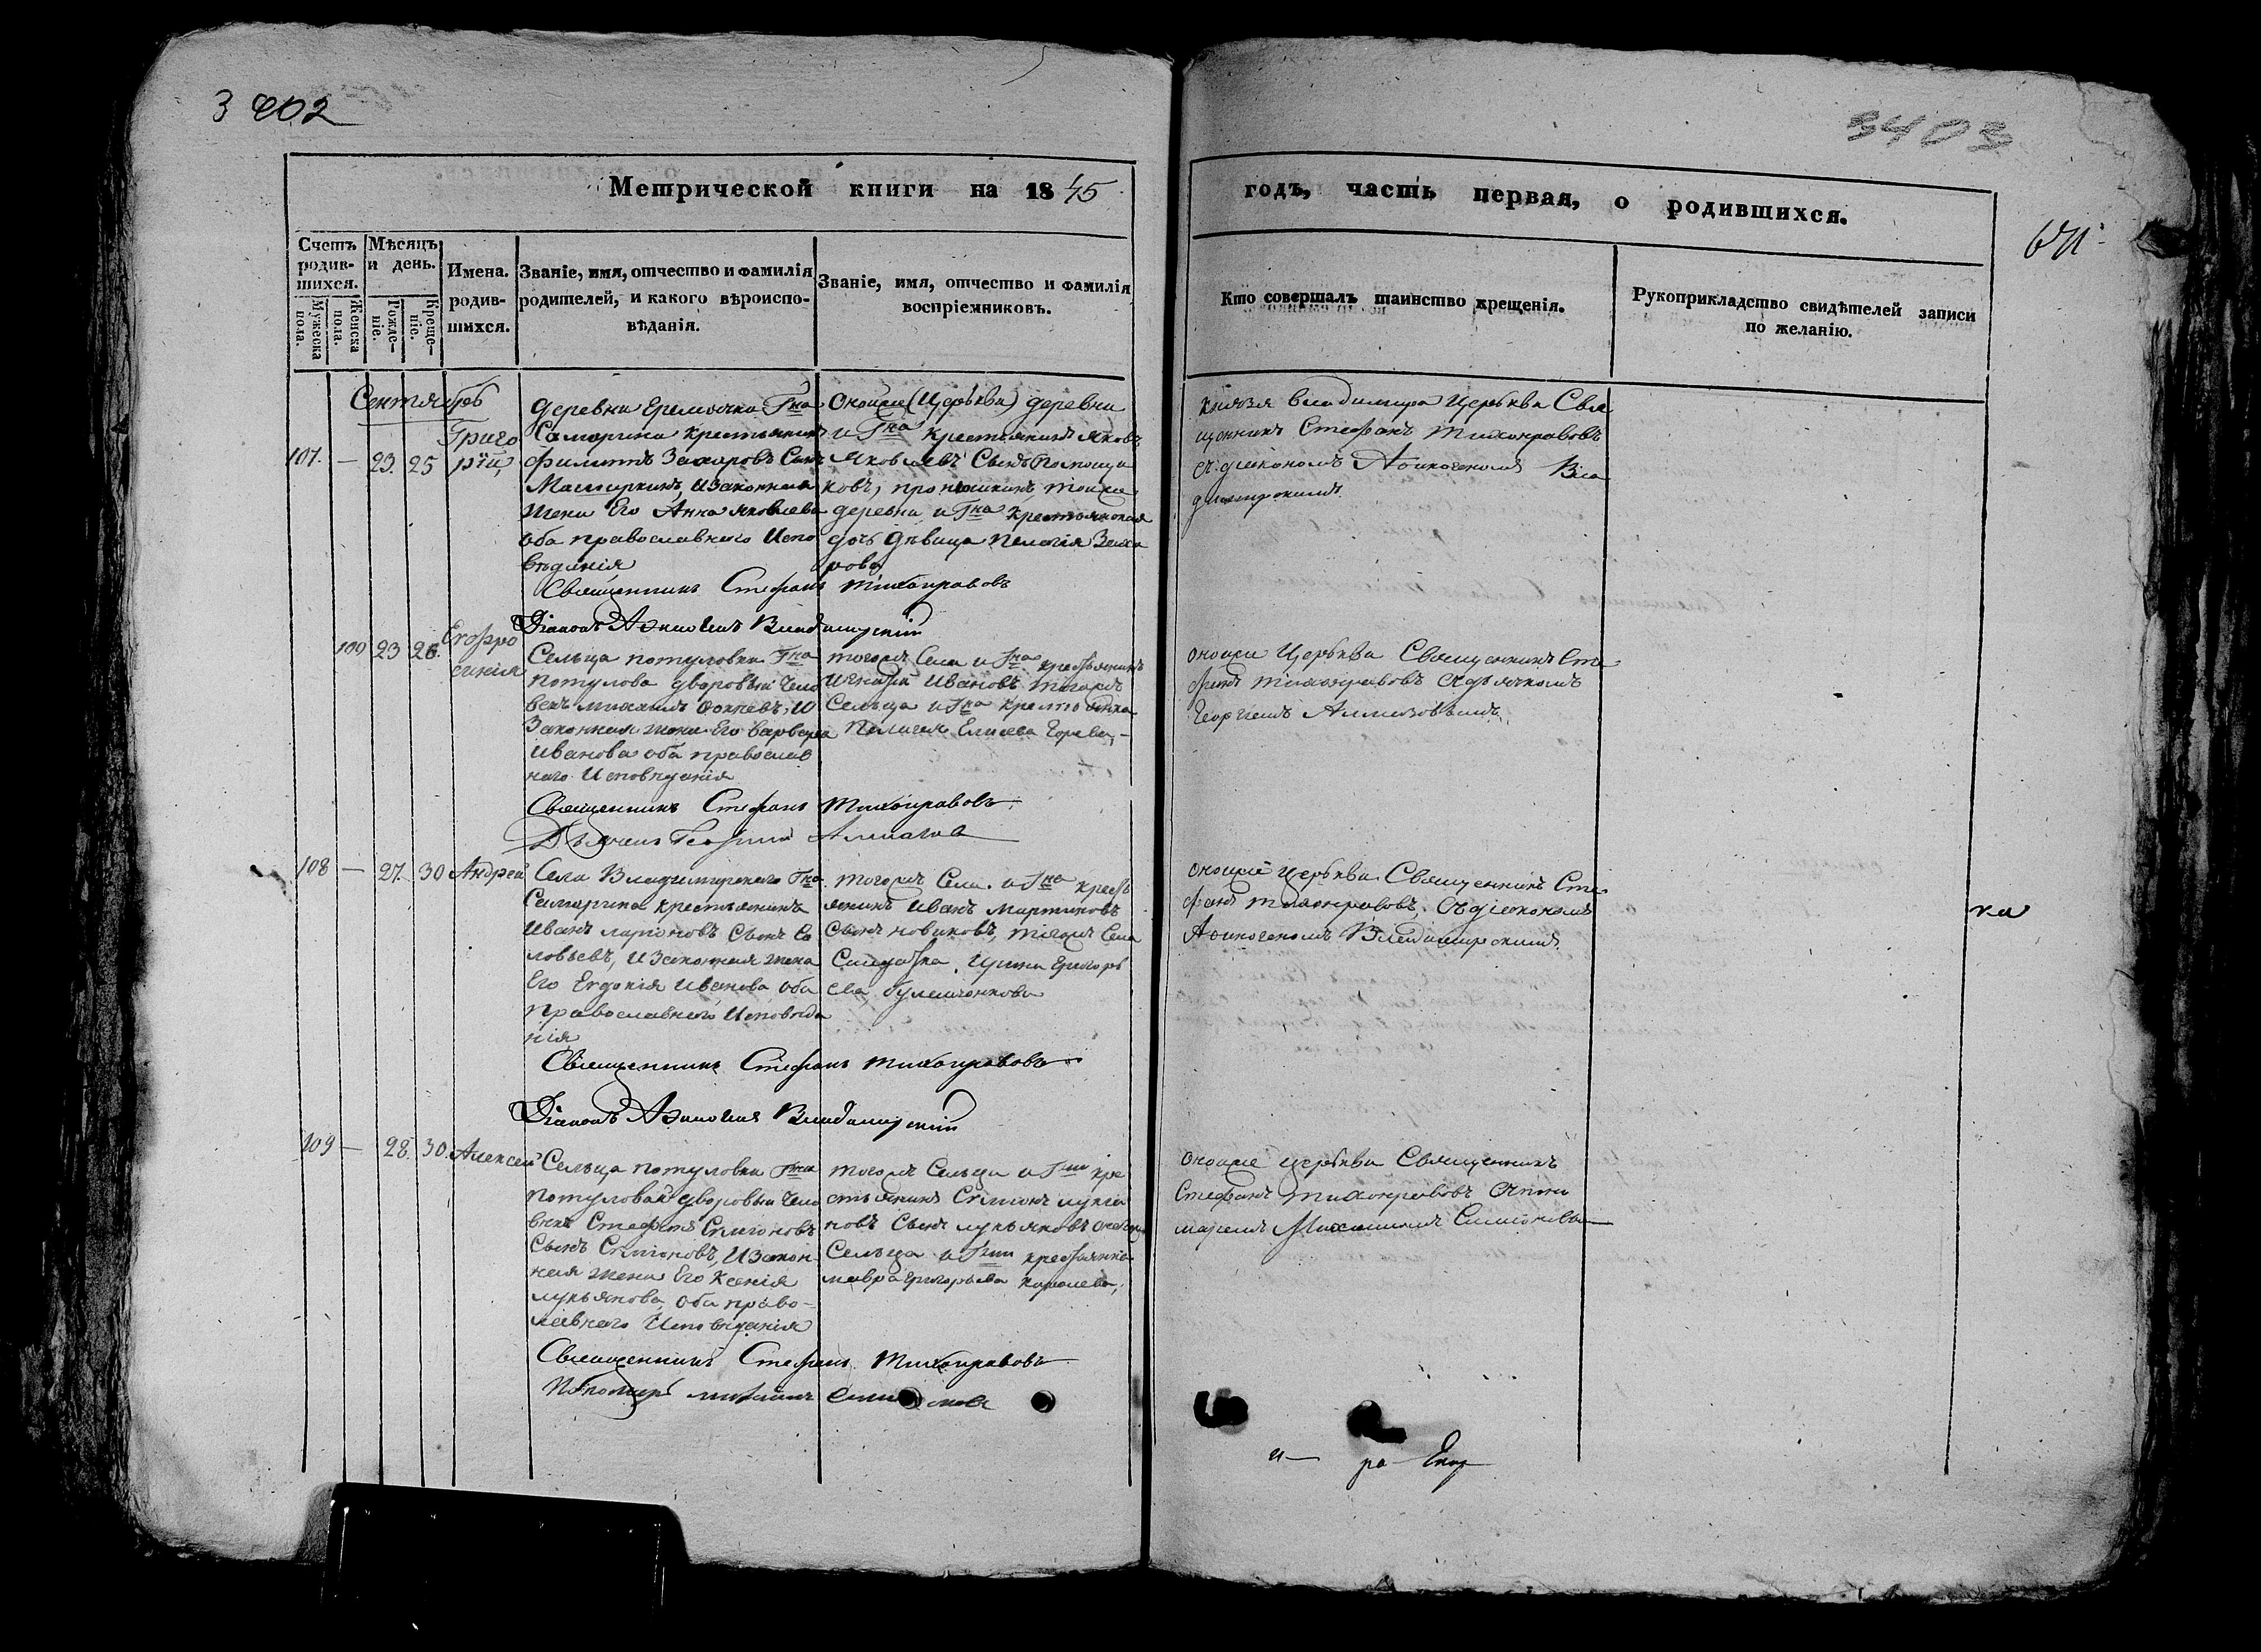 3402
3403
Метрической книги на 1845
годъ, часть первая, о родившихся.
Счетъ родив-шихся.
Мужеска пола.
Женска пола.
Мѣсяцъ и день.
Рожде-ніе.
Креще-ніе.
Имена. родив-шихся.
Званіе, имя, отчество и фамилія
родителей, и какого вѣроиспо-
вѣданія.
Званіе, имя, отчество и фамилія
воспріемниковъ.
Кто совершалъ таинство крещенія.
Рукоприкладство свидѣтелей записи
по желанію.
Сентябрь
107. — 23. 25
Григо
рій,
деревни Еремочки Гна
Самарина крестьянинъ
Филиппъ Захаровъ Сынъ
Машуркинъ, и законная
жена Его Анна Яковлева
оба православнаго Испо
вѣданія
оной же (Церквы) деревни
и Гна крестьянинъ Яковъ
Яковлевъ Сынъ
тойже
деревни и Гна крестьянская
дочь дѣвица Пелагія Заха
рова
князя Владимира Церквы Свя
щенникъ Стефанъ Тихонравовъ
съ діакономъ Аѳиногеномъ Вла
димирскимъ.
Священникъ Стефанъ Тихонравовъ
Діаконъ Аѳиногенъ Владимирскій
100 23 26.
Евфро
синія
Сельца Потуловки Гна
Потулова дворовый чело
векъ Михаилъ Фокеевъ, и
Законная жена Его Варвара
Иванова оба православ
наго Исповѣданія
тогожъ Села и Гна крестьянинъ
Игнатій Ивановъ тогожъ
Сельца и Гна крестьянка
Пелагея Елисева
оной же Церквы Священникъ Сте
фанъ Тихонравовъ съ дьячкомъ
Георгіемъ Алмазовымъ.
Священникъ Стефанъ Тихонравовъ
Дьячекъ Георгій Алмазов
108 — 27. 30 Андрей
Села Владимирскаго Гна
Самарина крестьянинъ
Иванъ Ларіоновъ Сынъ Со
ловьевъ, и законная жена
Его Евдокія Иванова оба
Православнаго Исповѣда
нія
тогожъ Села и Гна кресть
янинъ Иванъ Мартиновъ
Сынъ Новиковъ, тогожъ Села
Ирина Григорь
ева
оной же Церквы Священникъ Сте
фанъ Тихонравовъ, съ діакономъ
Аѳиногеномъ Владимирскимъ.
Священникъ Стефанъ Тихонравовъ
Діаконъ Аѳиногенъ Владимирскій
109 — 28. 30. Алексей
Сельца Потуловки Гна
Потулова дворовый чело
векъ Стефанъ Симіоновъ
Сынъ Симіоновъ, и закон
ная жена Его Ксенія
Лукьянова, оба право-
славнаго Исповѣданія
тогожъ Сельца и Гна кре
стьянинъ Симіонъ Лукья
новъ Сынъ Лукьяновъ
Сельца и Гна крестьянка
Мавра Григорьева
оной же Церквы Священникъ
Стефанъ Тихонравовъ съ поно
маремъ Михаиломъ
Священникъ Стефанъ Тихонравовъ
Пономарь Михаилъ